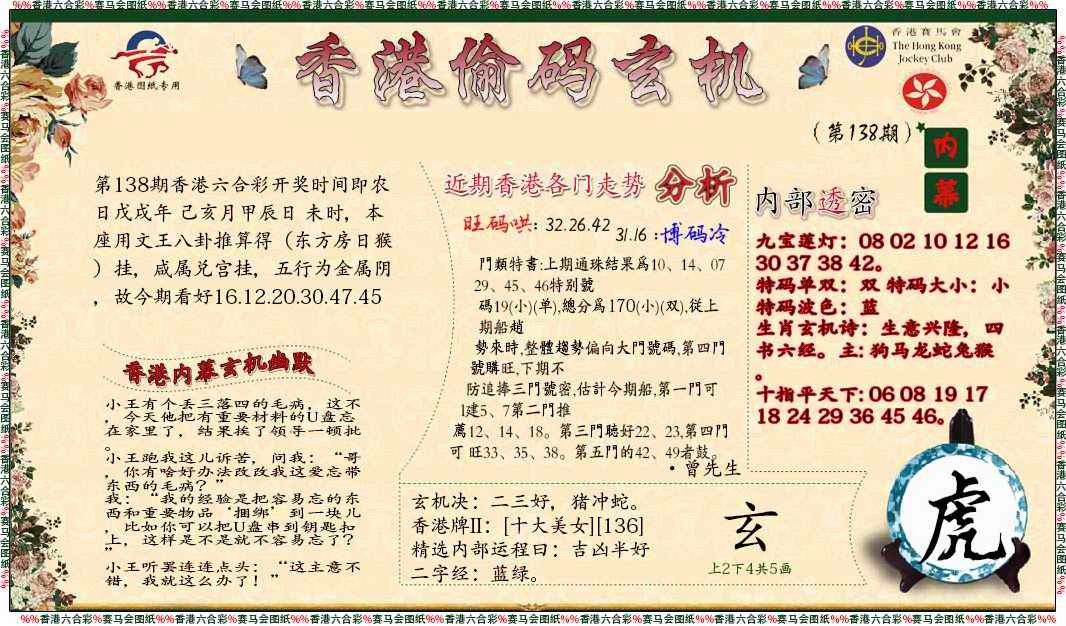 %%香港六合彩%赛马会图纸%%香港六合彩%赛马会图纸%%香港六合彩%赛马会图纸%%香港六合彩%赛马会图纸%%香港六合彩%赛马会图纸%%香港六合彩%%
香港图纸专用
香港偷码玄机
香港賽馬會
The Hong Kong
Jockey Club
(第138期)
内
幕
第138期香港六合彩开奖时间即农
日戊戌年 己亥月甲辰日 未时，本
座用文王八卦推算得（东方房日猴
）挂，咸属兑宫挂，五行为金属阴
，故今期看好16.12.20.30.47.45
香港内幕玄机幽默
小王有个丢三落四的毛病，这不
，今天他把有重要材料的U盘忘
在家里了，结果挨了领导一顿批
。
小王跑我这儿诉苦，问我：“哥
，你有啥好办法改改我这爱忘带
东西的毛病？”
我：“我的经验是把容易忘的东
西和重要物品‘捆绑’到一块儿
，比如你可以把U盘串到钥匙扣
上，这样是不是就不容易忘了？
”
小王听罢连连点头：“这主意不
错，我就这么办了！”
近期香港各门走势 分析
旺码哄: 32.26.42
31.16 :博码冷
門類特書:上期通珠結果爲10、14、07
29、45、46特别號
碼19(小)(单),總分爲170(小)(双),従上
期船趙
勢來時,整體趨勢偏向大門號碼,第四門
號購旺,下期不
防追捧三門號密,估計今期船,第一門可
1建5、7第二門推
薦12、14、18。第三門聽好22、23,第四門
可 旺33、35、38。第五門的42、49者鼓。
·曾先生
玄机决：二三好，猪冲蛇。
香港牌II：[十大美女][136]
精选内部运程曰：吉凶半好
二字经：蓝绿。
玄
上2下4共5画
内部透密
九宝莲灯：08 02 10 12 16
30 37 38 42。
特码单双：双 特码大小：小
特码波色：蓝
生肖玄机诗：生意兴隆，四
书六经。主: 狗马龙蛇兔猴
。
十指平天下: 06 08 19 17
18 24 29 36 45 46。
虎
%%香港六合彩%赛马会图纸%%香港六合彩%赛马会图纸%%香港六合彩%赛马会图纸%%香港六合彩%赛马会图纸%%香港六合彩%赛马会图纸%%香港六合彩%%